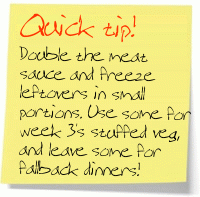 Quick tip!
Double the meat
sauce and freeze
leftovers in small
portions. Use some for
week 3's stuffed veg,
and leave some for
fallback dinners!